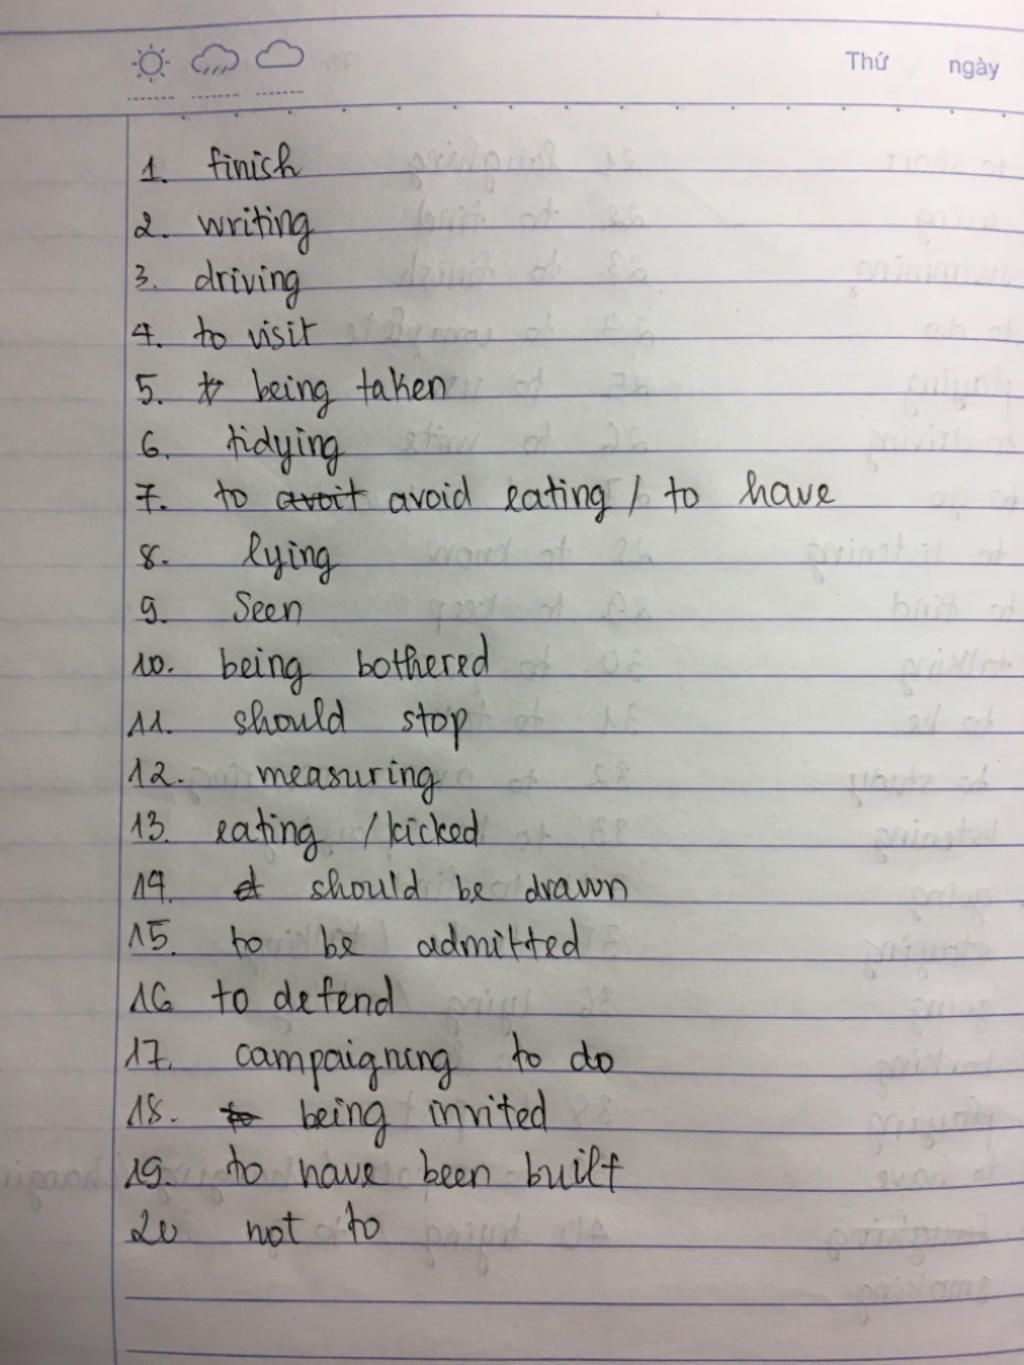 Thứ ngày
1. finish
2. writing
3. driving
4. to visit
5. being taken
6. tidying
7. to avoit avoid eating / to have
8. lying
9. Seen
10. being bothered
11. should stop
12. measuring
13. eating / kicked
14. should be drawn
15. to be admitted
16 to defend
17. campaigning to do
18. to being invited
19. to have been built
20 not to